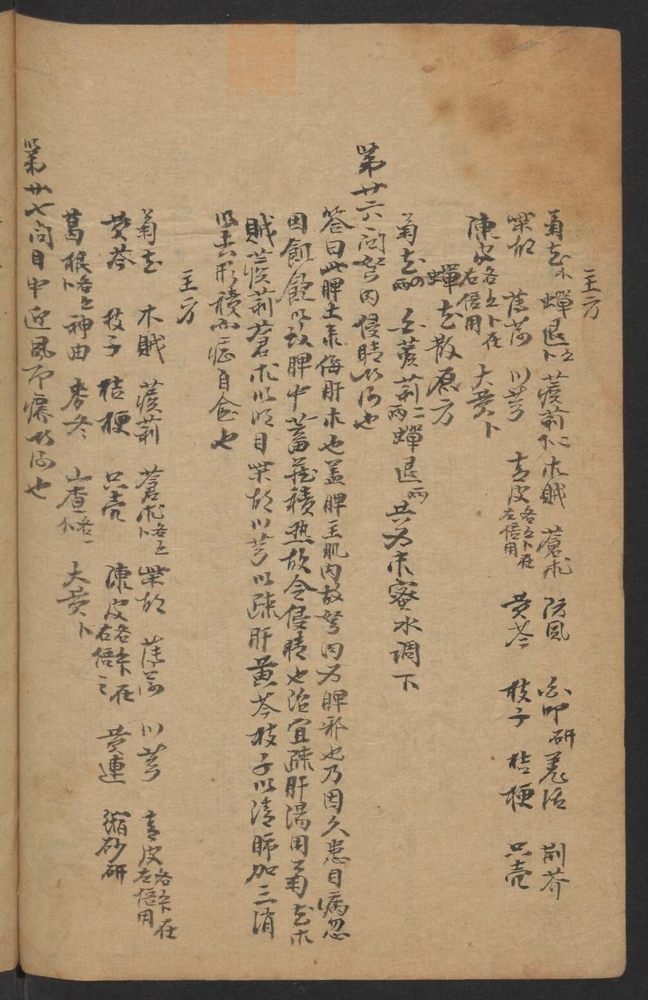 主方
菊花 蟬退 蒺莉 木賊 蒼朮 防風 研 羌活 荆芥
柴胡 薄荷 川芎 青皮 黄芩 枝子 桔梗 只壳
陳皮 大黄
蟬花散原方
菊花 白蒺莉 蟬退 共为末蜜水調下
第廿六問胬肉侵睛以何也
答曰此脾土来侮肝木也盖脾主肌肉故胬肉为脾邪也乃因久患目病忽
因飢飽以致脾中蓄積热故令侵睛也治宜疎肝湯用菊花木
賊蒺莉蒼朮以明目柴胡川芎以疎肝黄芩枝子以清肺加三消
以去形積而症自愈也
主方
菊花 木賊 蒺莉 蒼朮 柴胡 薄荷 川芎 青皮
黄芩 枝子 桔梗 只壳 陳皮 黄連 縮砂研
葛根 神曲 麥冬 山查 大黄
第廿七問目中迎風而痒以何也